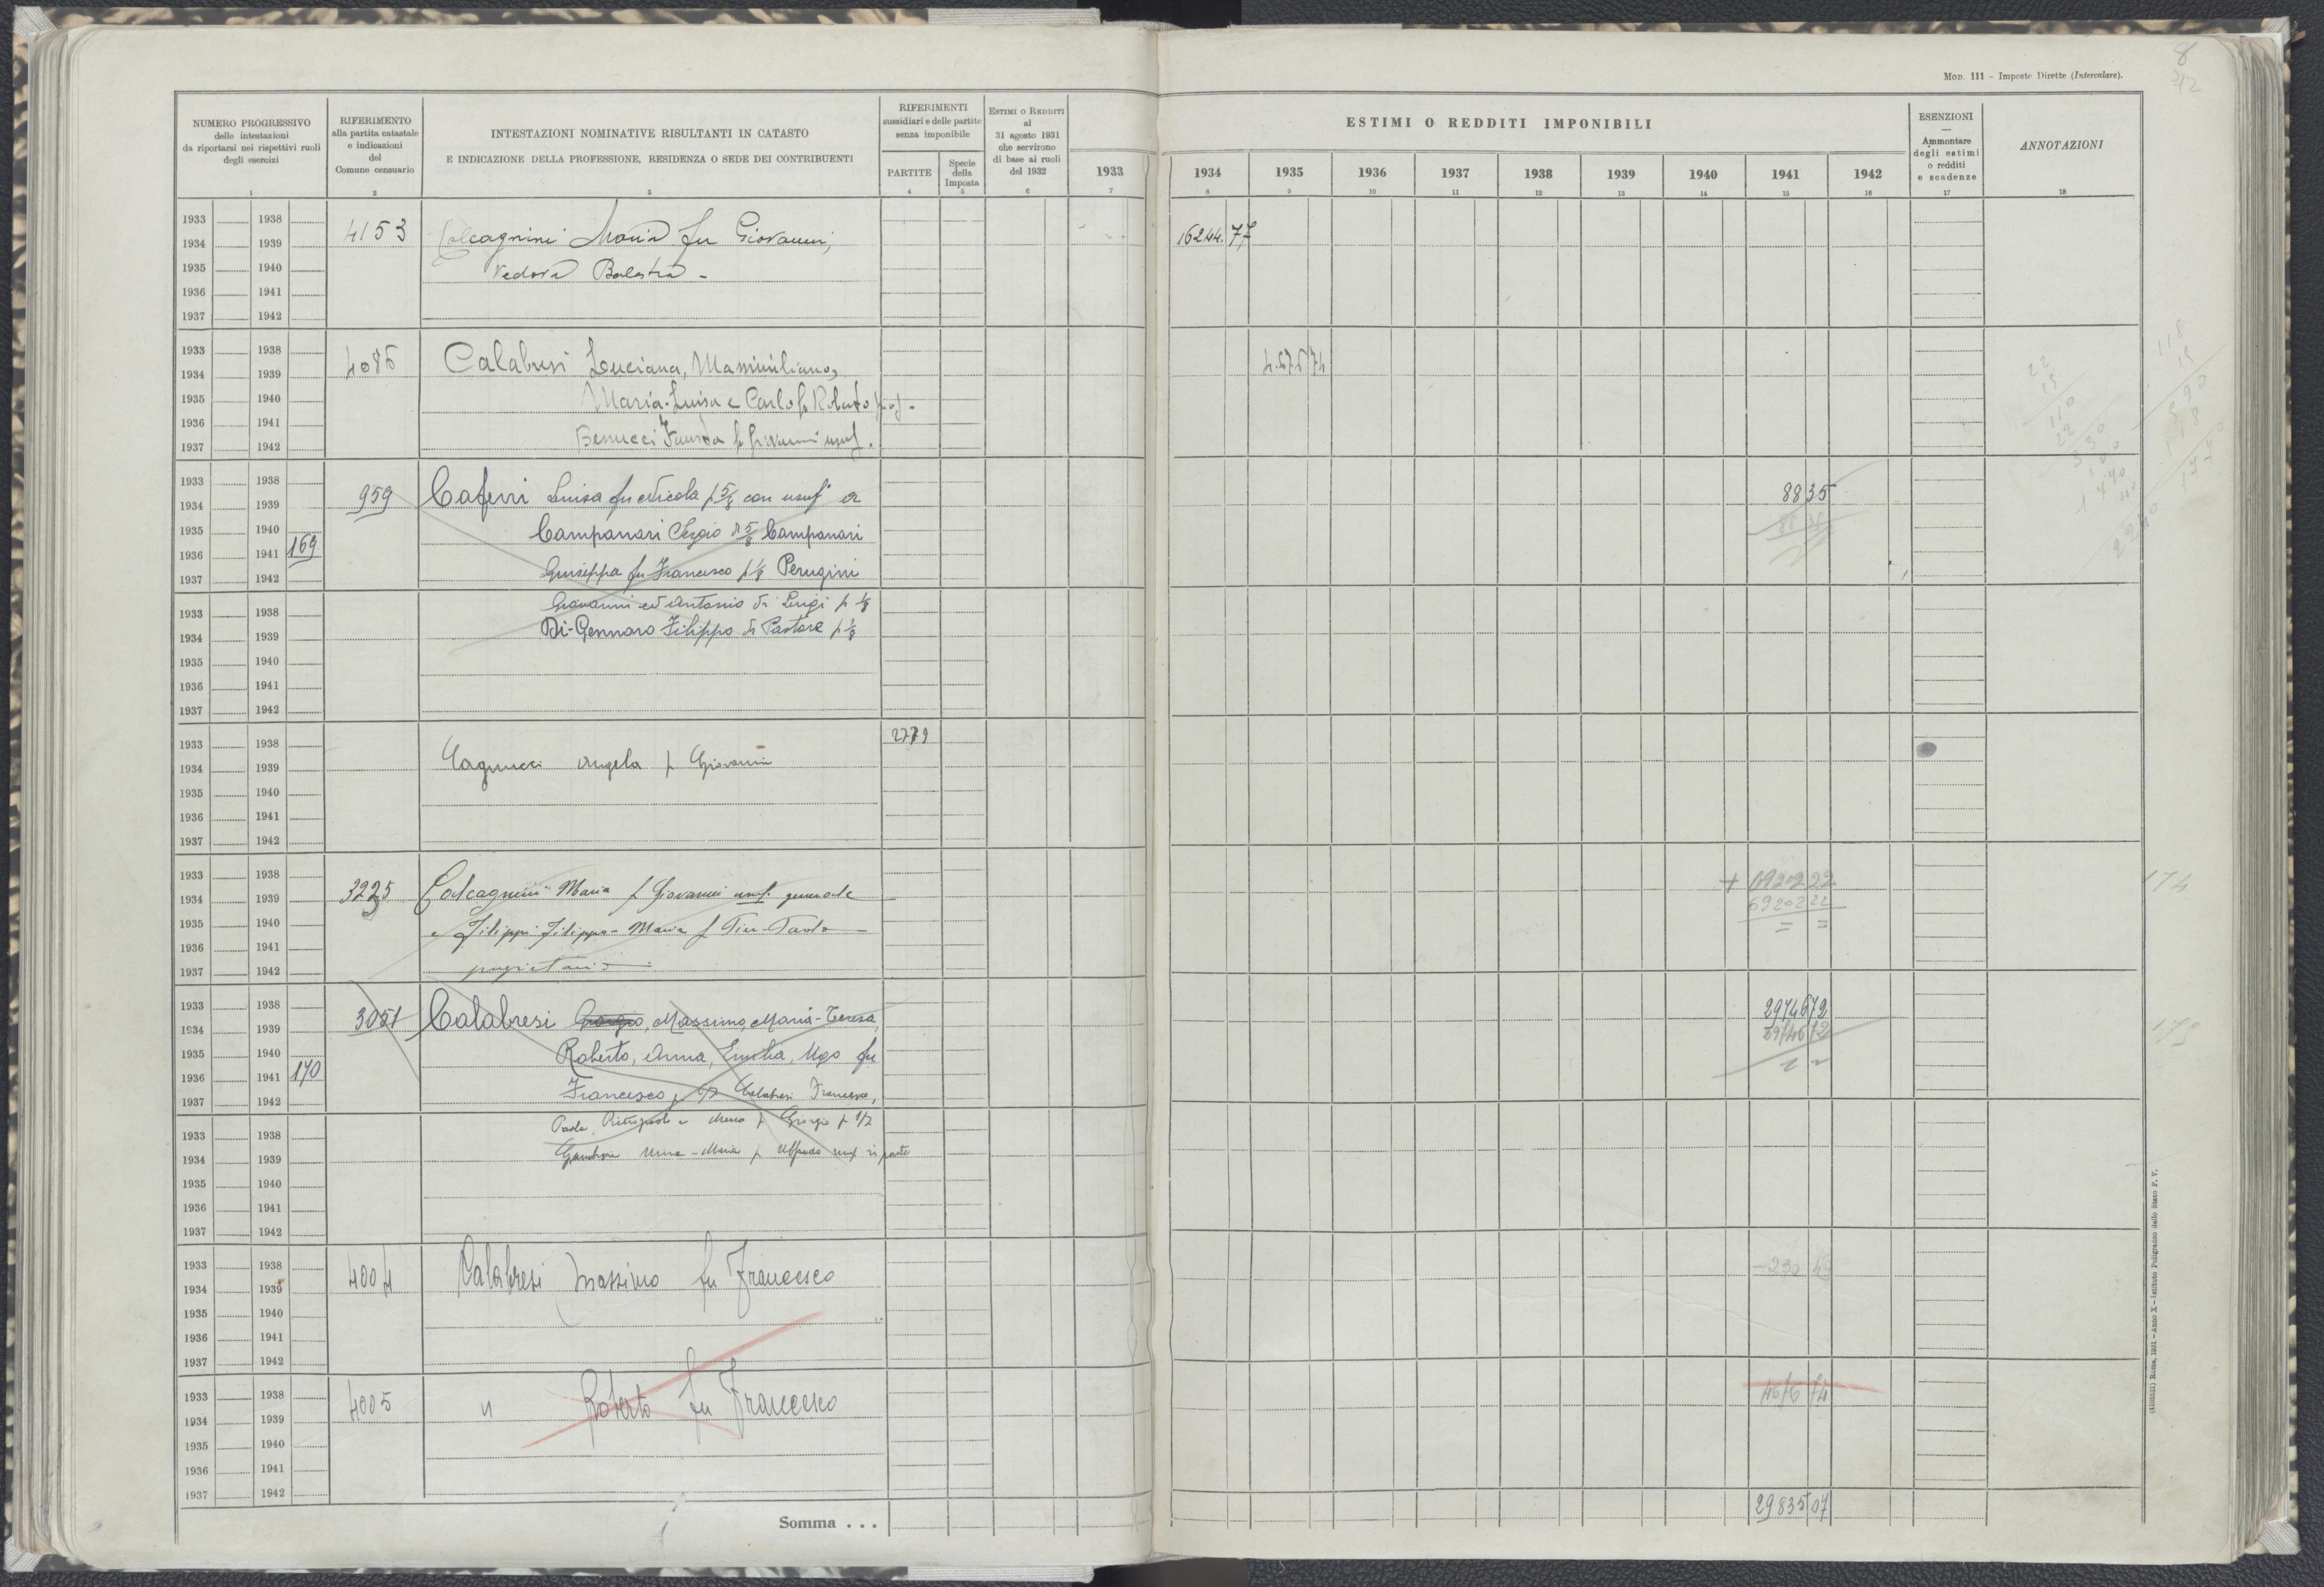 8
Mod. 111 – Imposte Dirette (Intercalare).
NUMERO PROGRESSIVO
delle intestazioni
da riportarsi nei rispettivi ruoli
degli esercizi
1
RIFERIMENTO
alla partita catastale
e indicazioni
del
Comune censuario
2
INTESTAZIONI NOMINATIVE RISULTANTI IN CATASTO
E INDICAZIONE DELLA PROFESSIONE, RESIDENZA O SEDE DEI CONTRIBUENTI
3
RIFERIMENTI
sussidiari e delle partite
senza imponibile
PARTITE
4
Specie
della
Imposta
5
ESTIMI O REDDITI
al
31 agosto 1931
che servirono
di base ai ruoli
del 1932
6
ESTIMI O REDDITI IMPONIBILI
1933 1934 1935 1936 1937 1938 1939 1940 1941 1942
7 8 9 10 11 12 13 14 15 16
ESENZIONI
—
Ammontare
degli estimi
o redditi
e scadenze
17
ANNOTAZIONI
18
1933 1938
1934 1939
1935 1940
1936 1941
1937 1942
4153
Calcagnini Maria fu Giovanni,
Vedova Balestra -
16244.77
1933 1938
1934 1939
1935 1940
1936 1941
1937 1942
4086
Calabresi Luciana, Massimiliano,
Maria-Luisa e Carlo fu Roberto
Benucci Fausta fu Giovanni usuf.
1933 1938
1934 1939
1935 1940
1936 1941 169
1937 1942
959
Caferri Luisa fu Nicola p 5/8 con usuf° a
Campanari Sergio di 5/8 Campanari
Giuseppa fu Francesco p 1/8 Perugini
88 35
1933 1938
1934 1939
1935 1940
1936 1941
1937 1942
Giovanni ed Antonio di Luigi p 1/8
Di-Gennaro Filippo di Pastore p 1/8
1933 1938
1934 1939
1935 1940
1936 1941
1937 1942
Cagnucci Angela f Giovanni
2779
1933 1938
1934 1939
1935 1940
1936 1941
1937 1942
3225
Calcagnini Maria f Giovanni usuf. generale
e Filippi Filippo-Maria f Pier-Paolo
proprietario
+ 69202 22
69202 22
= =
174
1933 1938
1934 1939
1935 1940
1936 1941 170
1937 1942
3051
Calabresi Giorgio, Massimo, Maria-Teresa,
Roberto, Anna, Emilia, Ugo fu
Francesco p 1/2 Calabresi Francesco,
29746 72
29746 72
1933 1938
1934 1939
1935 1940
1936 1941
1937 1942
Paola, Pietropaolo e Marco f Giorgio p 1/2
Anna-Maria f Alfredo usuf in parte
1933 1938
1934 1939
1935 1940
1936 1941
1937 1942
4004
Calabresi Massimo fu Francesco
1933 1938
1934 1939
1935 1940
1936 1941
1937 1942
4005
" Roberto fu Francesco
4676 74
Somma . . .
29835 07
(4100531) Roma, 1931 - Anno X - Istituto Poligrafico dello Stato P. V.